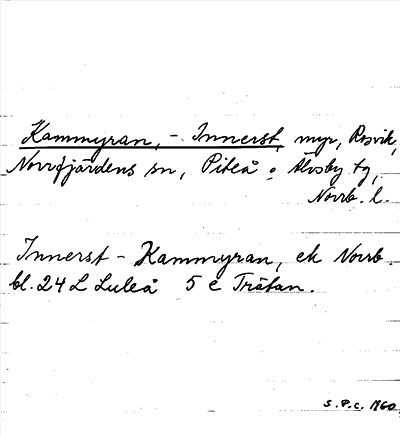 Kammyran, - Innerst, myr, Rosvik,
Norrfjärdens sn, Piteå o Älvsby tg,
Norrb. l.
Innerst - Kammyran, ek Norrb
bl. 24 L Luleå 5 e Trätan.
S.P.C. 1960